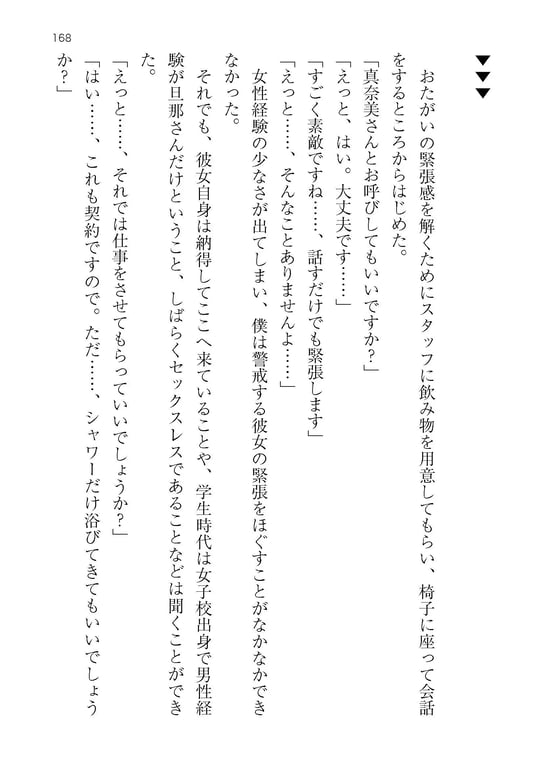 168
▼▼▼
おたがいの緊張感を解くためにスタッフに飲み物を用意してもらい、椅子に座って会話
をするところからはじめた。
「真奈美さんとお呼びしてもいいですか？」
「えっと、はい。大丈夫です……」
「すごく素敵ですね……、話すだけでも緊張します」
「えっと……、そんなことありませんよ……」
女性経験の少なさが出てしまい、僕は警戒する彼女の緊張をほぐすことがなかなかでき
なかった。
それでも、彼女自身は納得してここへ来ていることや、学生時代は女子校出身で男性経
験が旦那さんだけということ、しばらくセックスレスであることなどは聞くことができ
た。
「えっと……、それでは仕事をさせてもらっていいでしょうか？」
「はい……、これも契約ですので。ただ……、シャワーだけ浴びてきてもいいでしょう
か？」